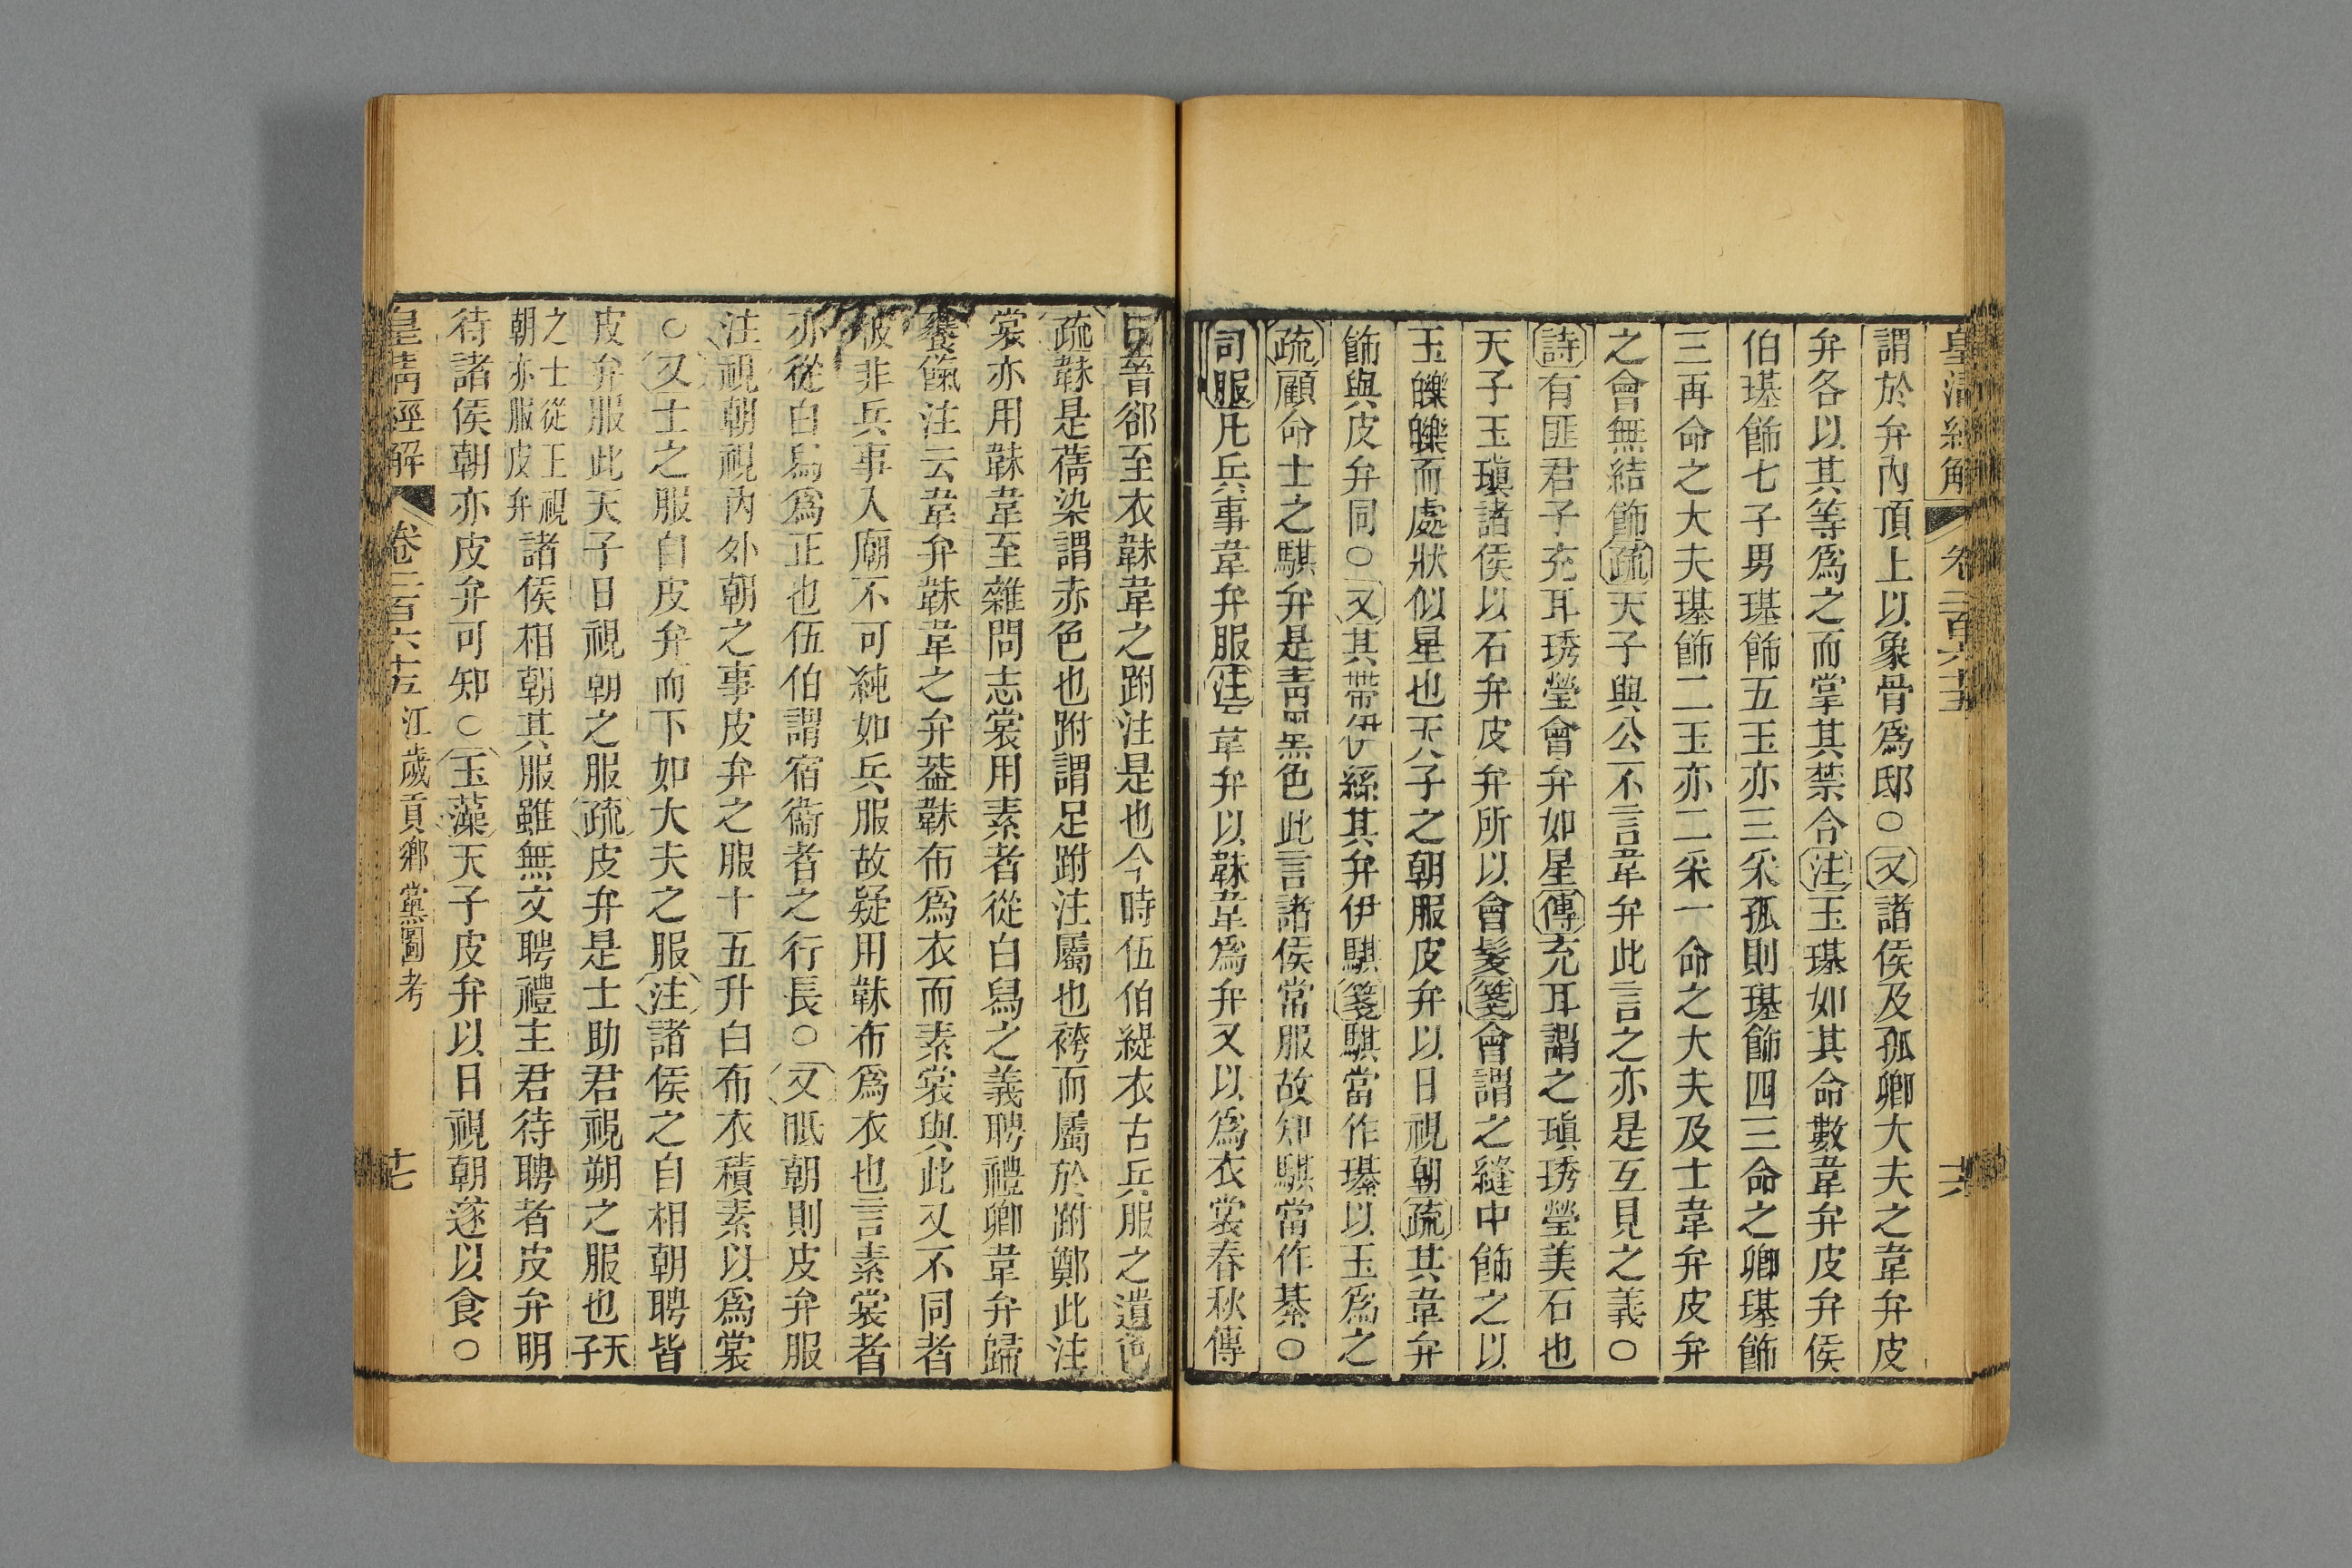 皇清經解 卷二百六十五 十六
謂於弁內頂上以象骨爲邸○又諸侯及孤卿大夫之韋弁皮
弁各以其等爲之而掌其禁令注玉璂如其命數韋弁皮弁侯
伯璂飾七子男璂飾五玉亦三采孤則璂飾四三命之卿璂飾
三再命之大夫璂飾二玉亦二采一命之大夫及士韋弁皮弁
之會無結飾疏天子與公不言韋弁此言之亦是互見之義○
詩有匪君子充耳琇瑩會弁如星傳充耳謂之瑱琇瑩美石也
天子玉瑱諸侯以石弁皮弁所以會髮箋會謂之縫中飾之以
玉皪皪而處狀似星也天子之朝服皮弁以日視朝疏其韋弁
飾與皮弁同○又其帶伊絲其弁伊騏箋騏當作璂以玉爲之
疏顧命士之騏弁是靑黑色此言諸侯常服故知騏當作綦○
司服凡兵事韋弁服注韋弁以韎韋爲弁又以爲衣裳春秋傳
曰晉郤至衣韎韋之跗注是也今時伍伯緹衣古兵服之遺色
疏韎是蒨染謂赤色也跗謂足跗注屬也袴而屬於跗鄭此注
裳亦用韎韋至雜問志裳用素者從白舄之義聘禮卿韋弁歸
饔餼注云韋弁韎韋之弁葢韎布爲衣而素裳與此又不同者
彼非兵事入廟不可純如兵服故疑用韎布爲衣也言素裳者
亦從白舄爲正也伍伯謂宿衞者之行長○又眡朝則皮弁服
注視朝視內外朝之事皮弁之服十五升白布衣積素以爲裳
○又士之服自皮弁而下如大夫之服注諸侯之自相朝聘皆
皮弁服此天子日視朝之服疏皮弁是士助君視朔之服也天子
之士從王視朝亦服皮弁諸侯相朝其服雖無文聘禮主君待聘者皮弁明
待諸侯朝亦皮弁可知○玉藻天子皮弁以日視朝遂以食○
皇清經解 卷二百六十五 江歲貢鄉黨圖考 十七